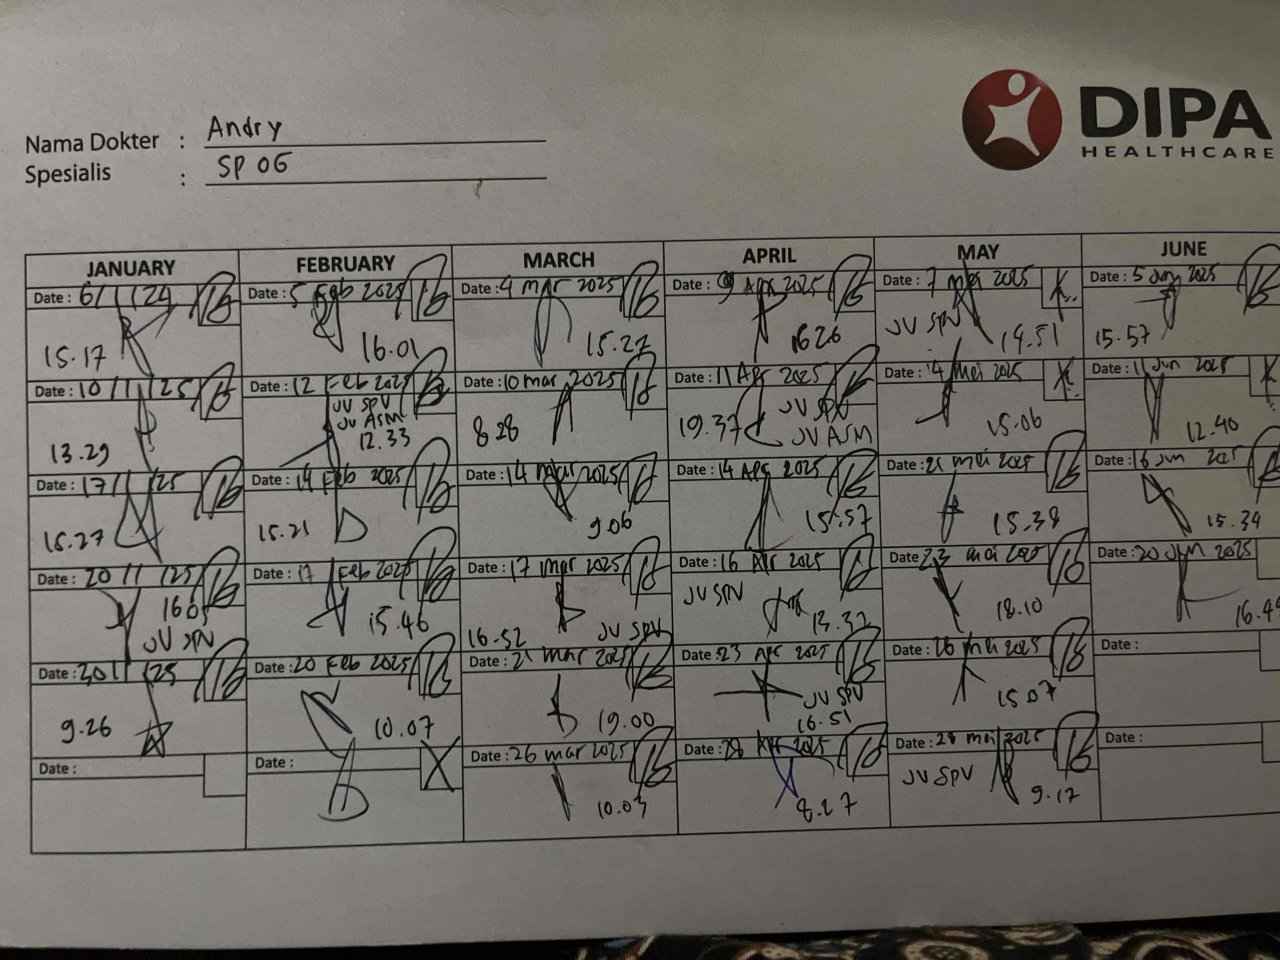 DIPA
HEALTHCARE
Nama Dokter : Andry
Spesialis : SP OG
JANUARY
Date : 6/1/24
15.17
Date : 10/1/25
13.29
Date : 17/1/25
15.27
Date : 20/1/25
JV SPV
Date : 30/1/25
9.26
Date :
FEBRUARY
Date : 5 Feb 2025
16.01
Date : 12 Feb 2025
JV SPV
JV ASM
12.33
Date : 14 Feb 2025
15.21
Date : 17 Feb 2025
15.46
Date : 20 Feb 2025
10.07
Date :
MARCH
Date : 4 Mar 2025
15.27
Date : 10 mar 2025
8 28
Date : 14 Mar 2025
9 06
Date : 17 Mar 2025
16.52 JV SPV
Date : 21 Mar 2025
19.00
Date : 26 mar 2025
10.03
APRIL
Date : 9 Apr 2025
16 26
Date : 11 Apr 2025
JV SPV
19.37 JV ASM
Date : 14 Apr 2025
15.57
Date : 16 Apr 2025
JV SPV
13.32
Date : 23 Apr 2025
JV SPV
16.51
Date : 28 Apr 2025
8.27
MAY
Date : 7 Mei 2025
JV SPV
14.51
Date : 14 Mei 2025
15.06
Date : 21 mei 2025
15.38
Date : 23 mei 2025
18.10
Date : 26 mei 2025
15.07
Date : 28 mei 2025
JV SPV 9.12
JUNE
Date : 5 Jun 2025
15.57
Date : 11 Jun 2025
12.40
Date : 16 Jun 2025
15.34
Date : 20 Jun 2025
Date :
Date :